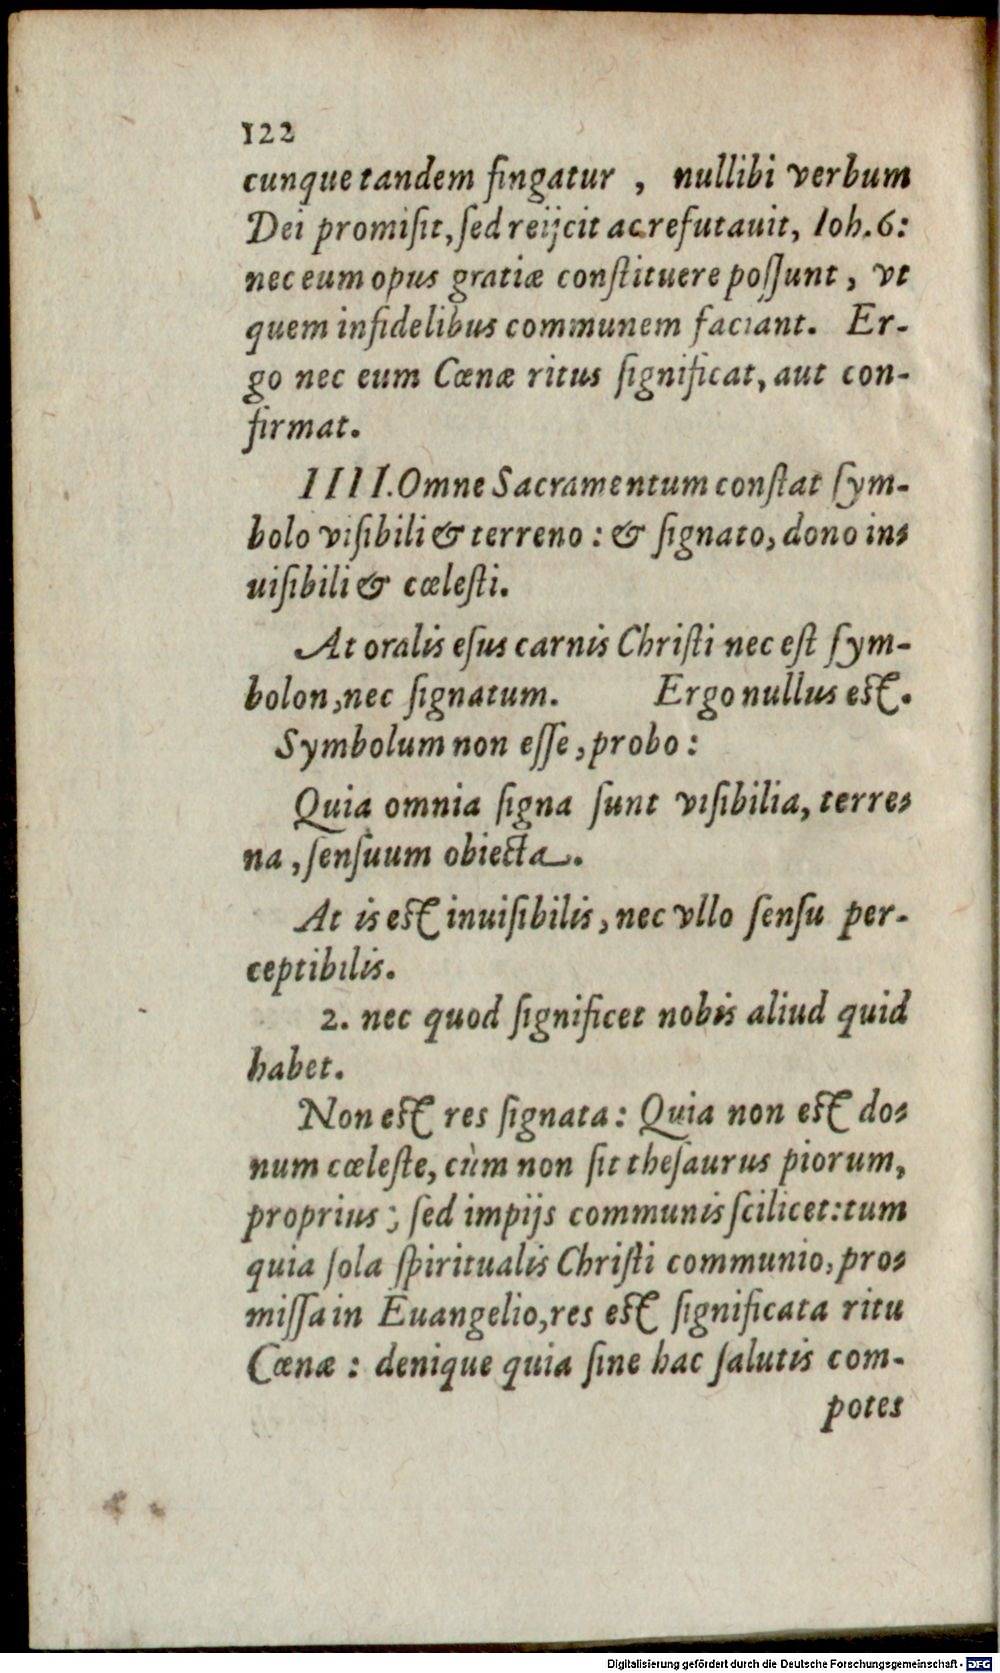 122
cunque tandem fingatur , nullibi verbum
Dei promiſit, ſed reijcit ac refutauit, Ioh. 6:
nec eum opus gratiæ conſtituere poſſunt, vt
quem infidelibus communem faciant. Er-
go nec eum Cœnæ ritus ſignificat, aut con-
firmat.
IIII. Omne Sacramentum conſtat ſym-
bolo viſibili & terreno: & ſignato, dono in-
uiſibili & cœleſti.
At oralis eſus carnis Chriſti nec eſt ſym-
bolon, nec ſignatum. Ergo nullus eſt.
Symbolum non eſſe, probo:
Quia omnia ſigna ſunt viſibilia, terre-
na, ſenſuum obiecta.
At is eſt inuiſibilis, nec vllo ſenſu per-
ceptibilis.
2. nec quod ſignificet nobis aliud quid
habet.
Non eſt res ſignata: Quia non eſt do-
num cœleſte, cùm non ſit theſaurus piorum,
proprius; ſed impijs communis ſcilicet: tum
quia ſola ſpiritualis Chriſti communio, pro-
miſſa in Euangelio, res eſt ſignificata ritu
Cœnæ: denique quia ſine hac ſalutis com-
potes
Digitalisierung gefördert durch die Deutsche Forschungsgemeinschaft - DFG